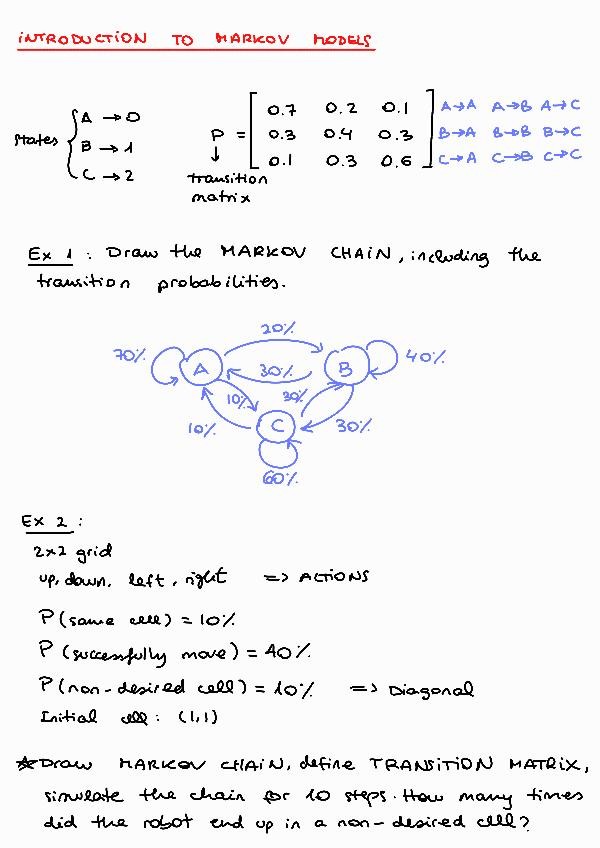 INTRODUCTION TO MARKOV MODELS
States { A → 0
B → 1
C → 2
P = [ 0.7 0.2 0.1 ] A→A A→B A→C
0.3 0.4 0.3 B→A B→B B→C
0.1 0.3 0.6 C→A C→B C→C
↓
transition
matrix
Ex 1 : Draw the MARKOV CHAIN, including the
transition probabilities.
20%
70% A 30% B 40%
10% 30%
10% C 30%
60%
Ex 2 :
2x2 grid
up, down, left, right => ACTIONS
P (same cell) = 10%
P (successfully move) = 40%
P (non-desired cell) = 10% => Diagonal
Initial cell: (1,1)
*Draw MARKOV CHAIN, define TRANSITION MATRIX,
simulate the chain for 10 steps. How many times
did the robot end up in a non-desired cell?